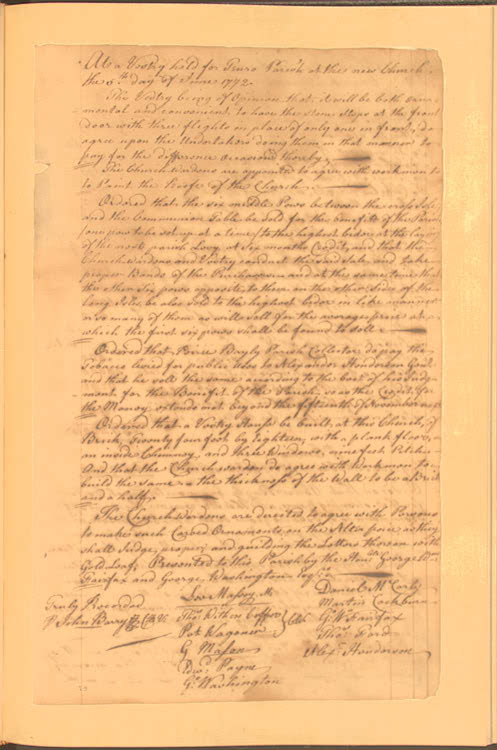 At a Vestry held for Truro Parish at the new Church
the 5th day of June 1772.
The Vestry being of Opinion that it will be both orna-
mental and convenient, to have the Stone Steps at the front
door with three flights in place of only one in front, do
agree upon the Undertakers doing them in that manner to
pay for the difference occasioned thereby
The Church wardens are appointed to agree with workmen to
to Paint the Roofe of the Church
Ordered that the six middle Pews between the cross Isle
and the Communion Table be sold for the benefit of the Parish
(one pew to be set up at a time) to the highest bidder at the laying
of the next parish Levy at six months Credit, and that the
Church wardens and Vestry conduct the said Sale, and take
proper Bonds of the Purchasers and at the same time that
the other six pews opposite to them on the other side of the
long Isle, be also sold to the highest bidder in like manner
or so many of them as will sell for the average price at
which the first six pews shall be found to sell
Ordered that Price Bayly Parish Collector do pay the
Tobacco levied for public Uses to Alexander Henderson Gent.
and that he sell the same according to the best of his Judg-
ment, for the Benefit of the Parish, so as the Credit for
the Money extends not beyond the fifteenth of November next
Ordered that a Vestry House be built at this Church, of
Brick, Twenty four foot by Eighteen, with a plank floor,
an inside Chimney, and three Windows, nine feet Pitch
And that the Church warden do agree with Workman to
build the same the thickness of the Wall to be a Brick
and a half
The Church Wardens are directed to agree with Persons
to make such Carved Ornaments on the Altar piece as they
shall Judge proper; and guilding the Letters thereon with
Gold Leaf; Presented to this Parish by the Honble George Wm
Fairfax and George Washington
Truly Recorded
P John Barry Cl. Vt.
Thos Withers Coffer
Pet. Wagener
G Mason
Edwd. Payne
Go. Washington
Daniel McCarty
Martin Cockburn
G. W. Fairfax
Thos. Ford
Alexr. Henderson